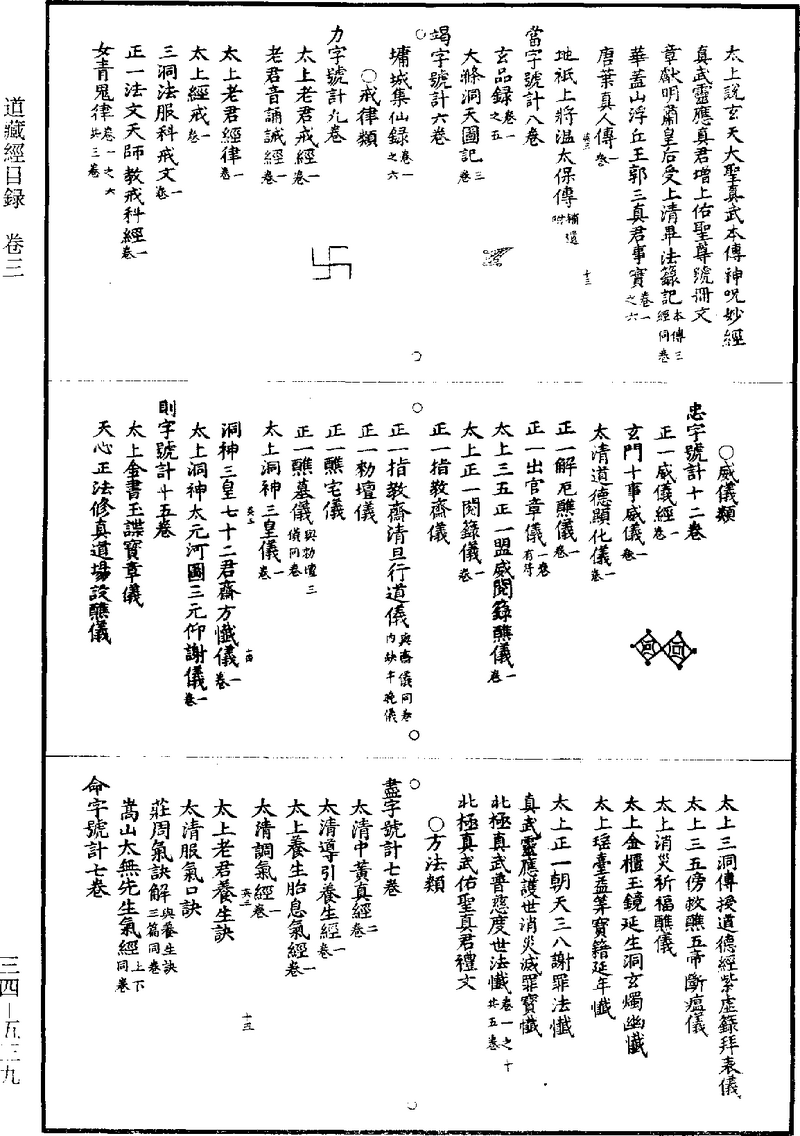 太上說玄天大聖真武本傳神呪妙經
真武靈應真君增上佑聖尊號冊文
章獻明肅皇后受上清畢法籙記本傳三經同卷
華蓋山浮丘王郭三真君事實卷一之六
唐葉真人傳一卷
地祇上將溫太保傳補遺附
十三
當字號計八卷
玄品錄卷一之五
大滌洞天圖記三卷
竭字號計六卷
墉城集仙錄卷一之六
○戒律類
力字號計九卷
太上老君戒經一卷
老君音誦誡經一卷
太上老君經律一卷
太上經戒一卷
三洞法服科戒文一卷
正一法文天師教戒科經一卷
女青鬼律卷一之六共三卷
○威儀類
忠字號計十二卷
正一威儀經一卷
玄門十事威儀一卷
太清道德顯化儀一卷
正一解厄醮儀一卷
正一出官章儀一卷有符
太上三五正一盟威閱籙醮儀一卷
太上正一閱籙儀一卷
正一指教齋儀
正一指教齋清旦行道儀與齋儀同卷內缺午晚儀
正一勑壇儀
正一醮宅儀
正一醮墓儀與勑壇三儀同卷
太上洞神三皇儀一卷
洞神三皇七十二君齋方懺儀一卷
十四
太上洞神太元河圖三元仰謝儀一卷
則字號計十五卷
太上金書玉諜寶章儀
天心正法修真道場設醮儀
太上三洞傳授道德經紫虛籙拜表儀
太上三五傍救醮五帝斷瘟儀
太上消災祈福醮儀
太上金櫃玉鏡延生洞玄燭幽懺
太上瑤臺益算寶籍延年懺
太上正一朝天三八謝罪法懺
真武靈應護世消災滅罪寶懺
北極真武普慈度世法懺卷一之十共五卷
北極真武佑聖真君禮文
○方法類
盡字號計七卷
太清中黃真經二卷
太清導引養生經一卷
太上養生胎息氣經一卷
太清調氣經一卷
十五
太上老君養生訣
太清服氣口訣
莊周氣訣解與養生訣三篇同卷
嵩山太無先生氣經上下同卷
命字號計七卷
道藏經目錄 卷三
三四—五三九